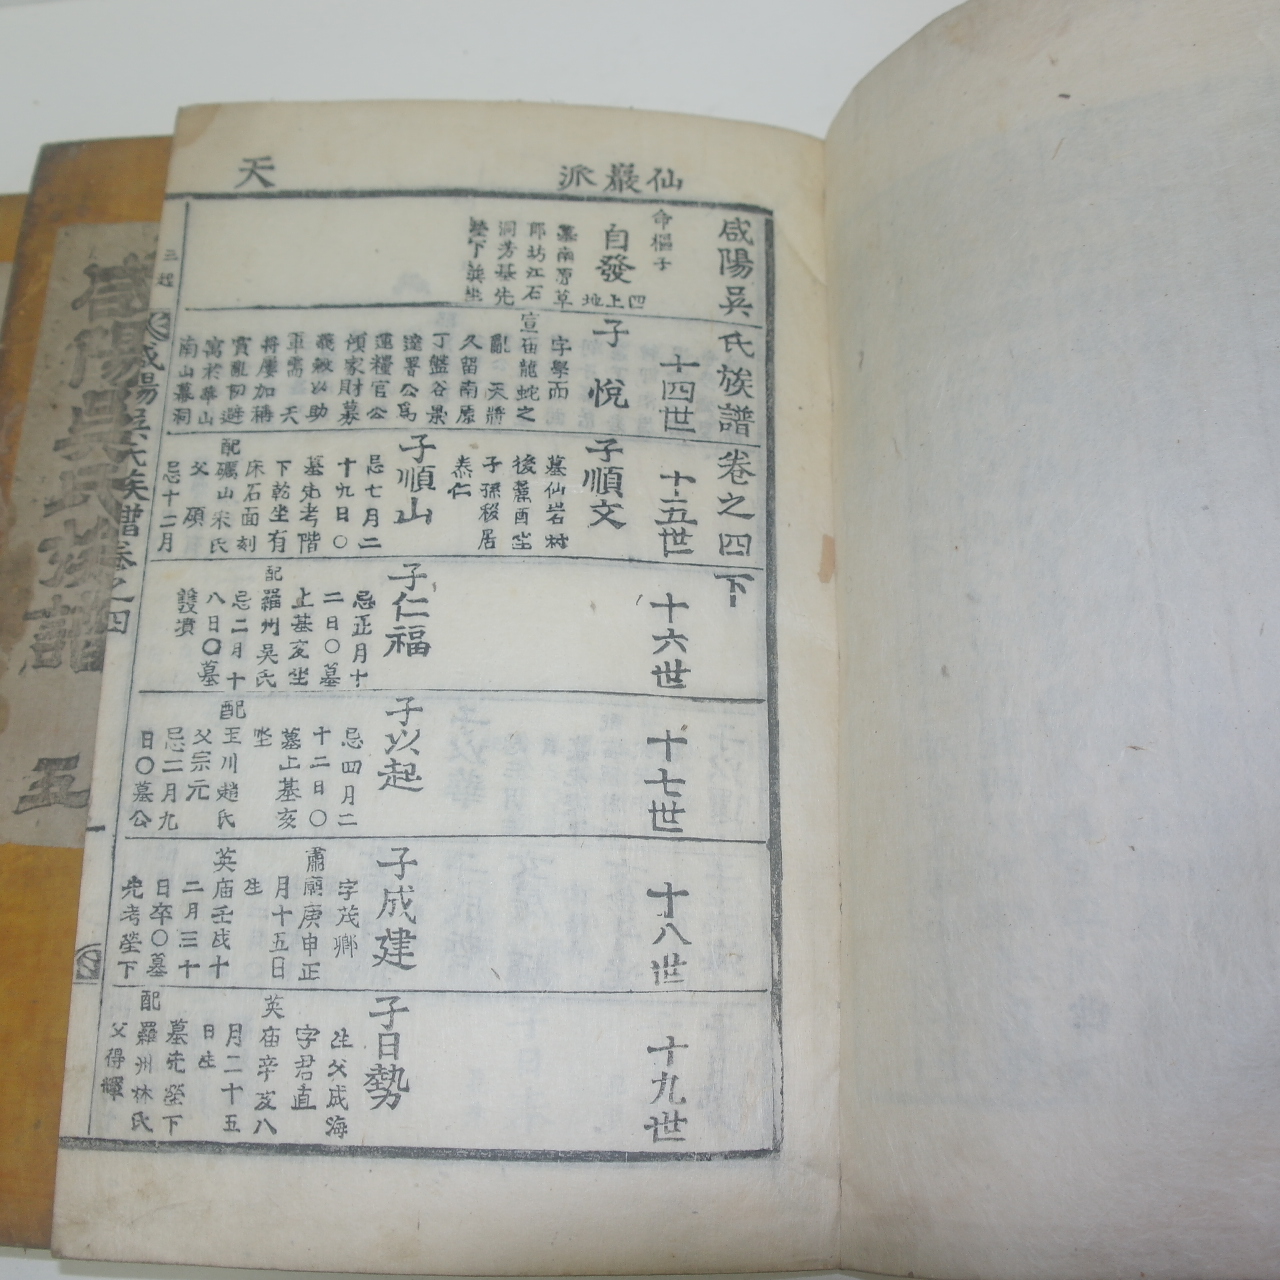 天
仙巖派
咸陽吳氏族譜卷之四下
命樞子
自發
四上地
墓南原草
郎坊江石
洞芳基先
塋下巽坐
十四世
子悅
字學而
宣庙龍蛇之
亂 天將
久留南原
丁盤谷景
達署公爲
運糧官公
傾家財募
義穀以助
軍需 天
將屢加稱
賞亂初避
寓於華山
南山墓洞
十五世
子順文
墓仙岩村
後麓酉坐
子孫移居
泰仁
子順山
忌七月二
十九日○
墓先考階
下乾坐有
床石面刻
配礪山宋氏
父碩
忌十二月
十六世
子仁福
忌正月十
二日○墓
上基亥坐
配羅州吳氏
忌二月十
八日○墓
雙墳
十七世
子以起
忌四月二
十二日○
墓上基亥
坐
配玉川趙氏
父宗元
忌二月九
日○墓公
十八世
子成建
字茂鄉
肅廟庚申正
月十五日
生
英庙壬戌十
二月三十
日卒○墓
先考塋下
十九世
子日勢
生父成海
字君直
英庙辛亥八
月二十五
日生
墓先塋下
配羅州林氏
父得輝
咸陽吳氏族譜卷之四
一
咸陽吳氏族譜
五